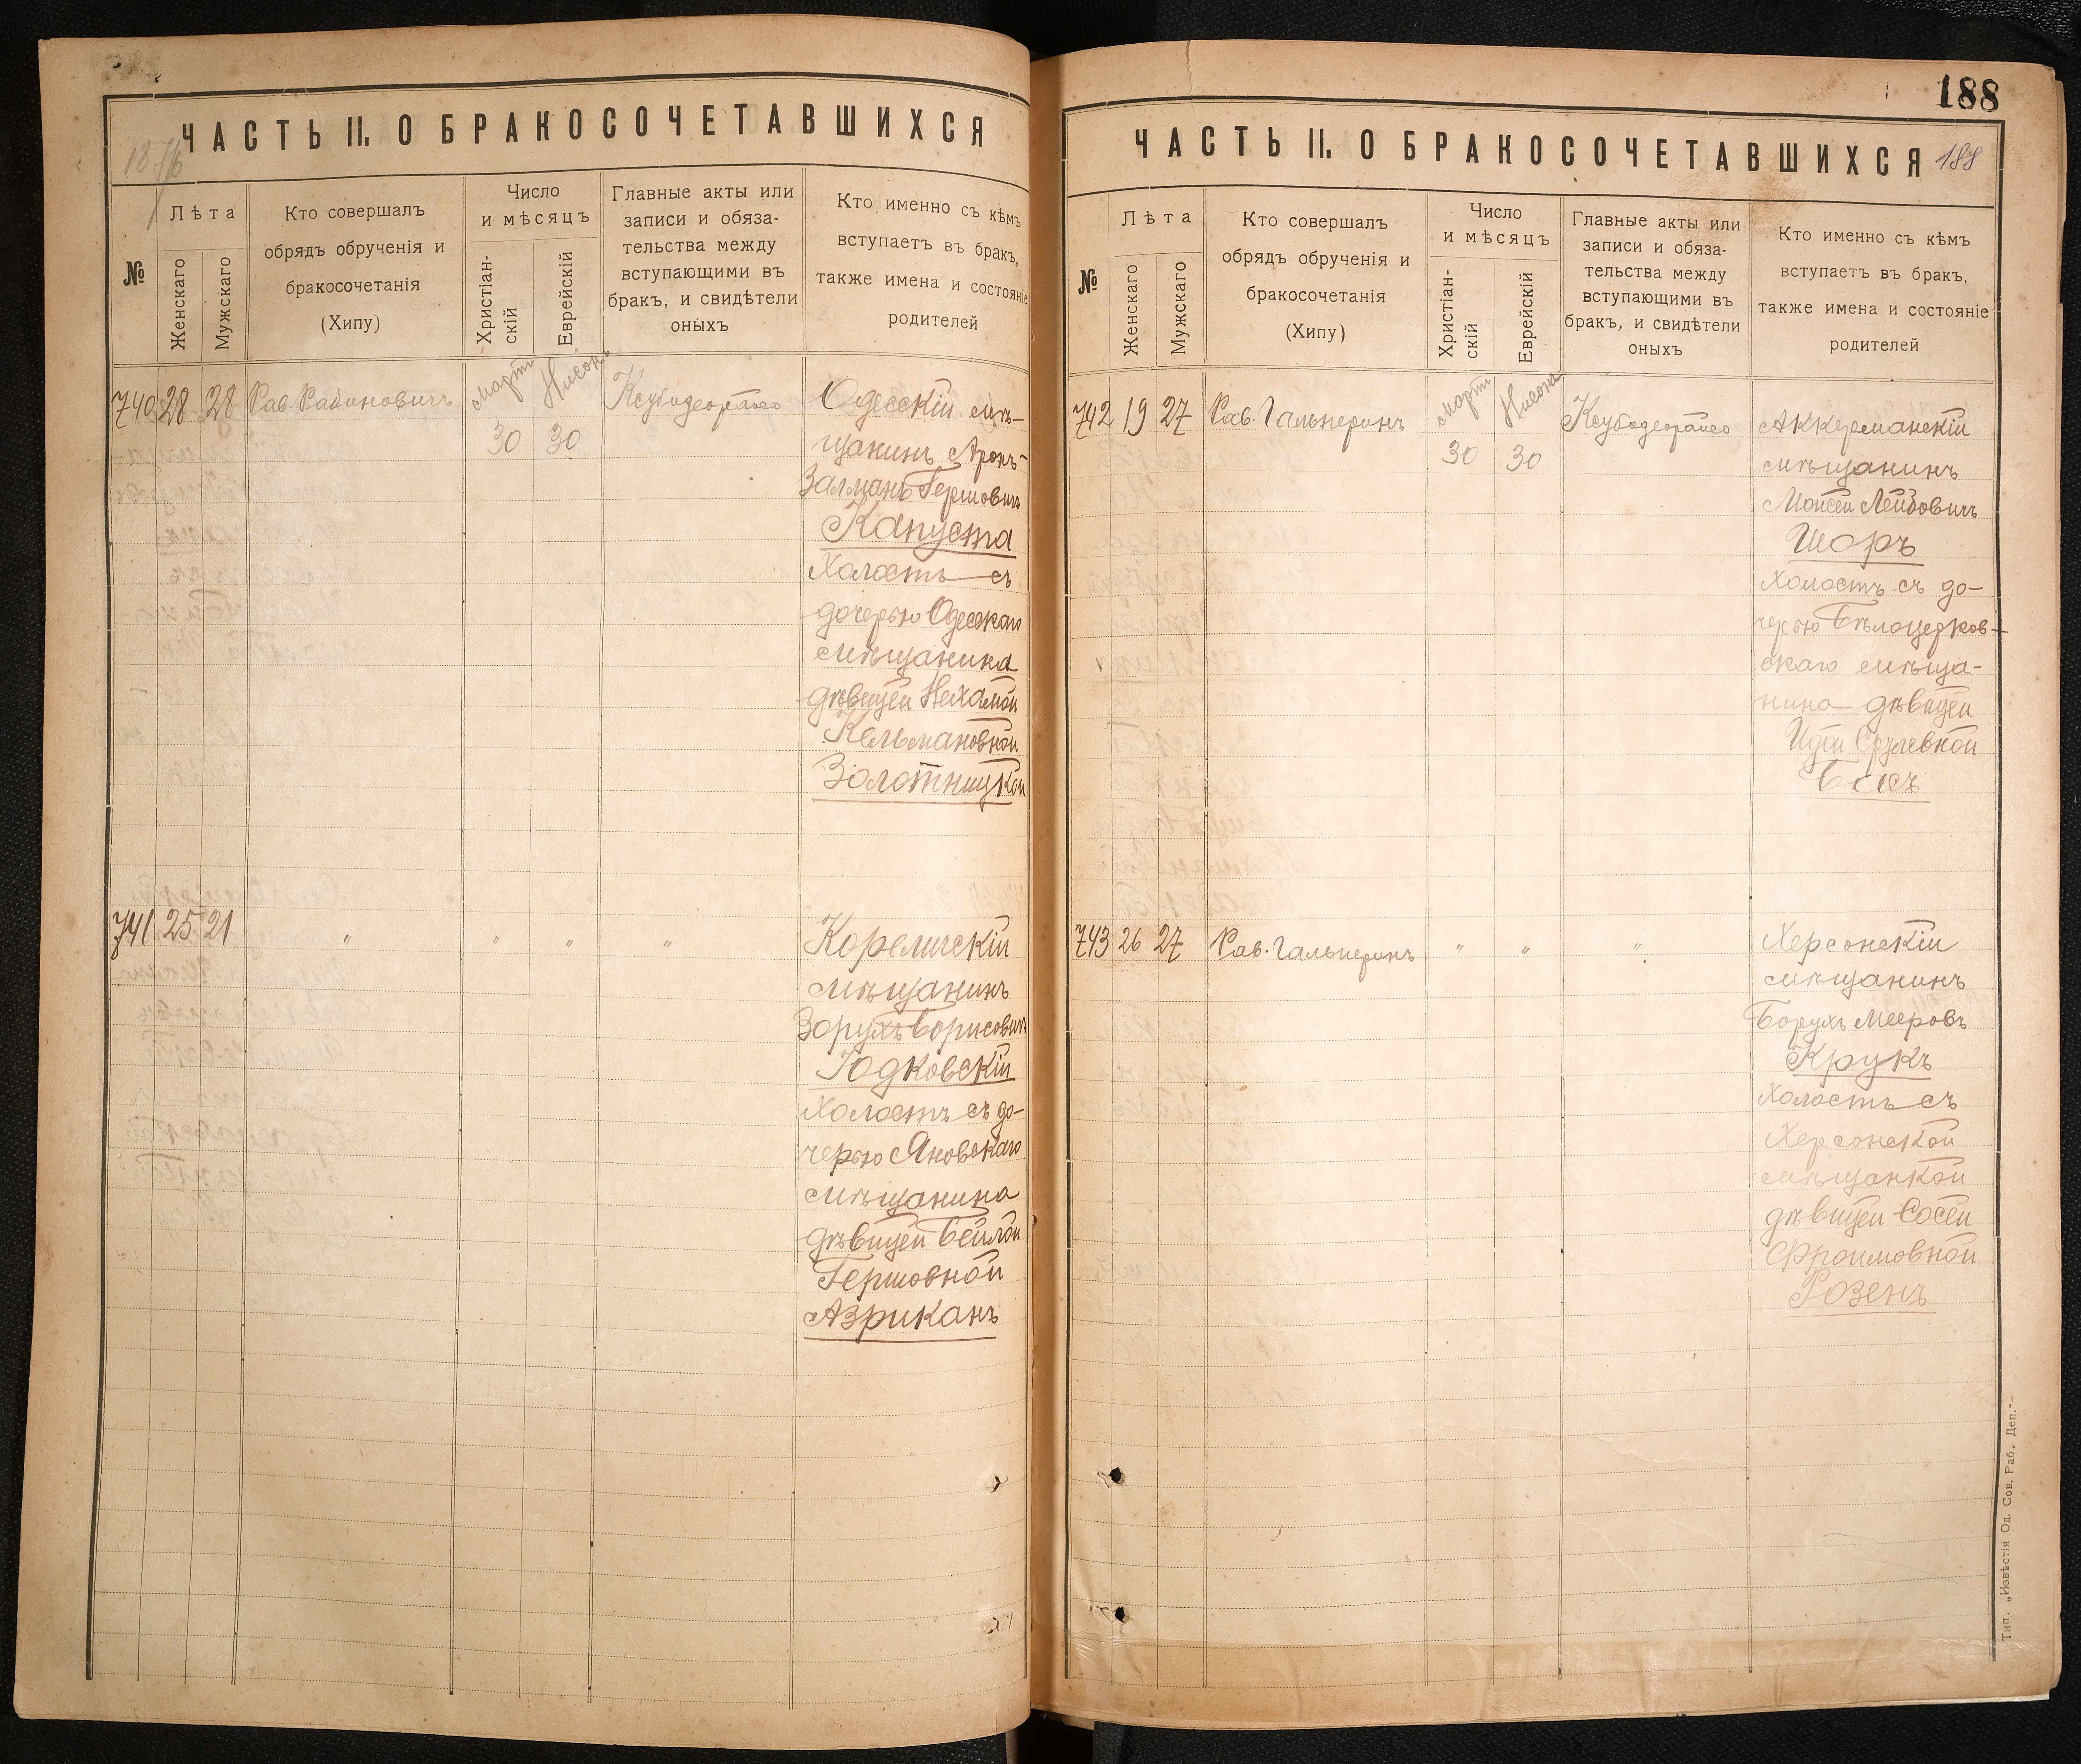 ЧАСТЬ II. О БРАКОСОЧЕТАВШИХСЯ
№
Лѣта
Женскаго
Мужскаго
Кто совершалъ
обрядъ обрученія и
бракосочетанія
(Хипу)
Число
и мѣсяцъ
Христіан-
скій
Еврейскій
Главные акты или
записи и обяза-
тельства между
вступающими въ
бракъ, и свидѣтели
оныхъ
Кто именно съ кѣмъ
вступаетъ въ бракъ,
также имена и состояніе
родителей
740 28 28 Рав. Рабиновичъ
Мартъ Нисонъ
30 30
Одесскій мѣ-
щанинъ Аронъ-
Залманъ Гершовичъ
Капуста
Холостъ съ
дочерью Одесскаго
мѣщанина
дѣвицей Нехамой
Кельмановной
Золотницкой
741 25 21 " " " "
Кореличскій
мѣщанинъ
Зорухъ Борисовичъ
Юдковскій
Холостъ съ до-
черью Яновскаго
мѣщанина
дѣвицей Бейлой
Гершовной
Азриканъ
188
ЧАСТЬ II. О БРАКОСОЧЕТАВШИХСЯ
188
№
Лѣта
Женскаго
Мужскаго
Кто совершалъ
обрядъ обрученія и
бракосочетанія
(Хипу)
Число
и мѣсяцъ
Христіан-
скій
Еврейскій
Главные акты или
записи и обяза-
тельства между
вступающими въ
бракъ, и свидѣтели
оныхъ
Кто именно съ кѣмъ
вступаетъ въ бракъ,
также имена и состояніе
родителей
742 19 27 Рав. Гальперинъ
Мартъ Нисонъ
30 30
Аккерманскій
мѣщанинъ
Мойсей Лейбовичъ
Шоръ
Холостъ съ до-
черью Бѣлоцерков-
скаго мѣща-
нина дѣвицей
Идой Срулевной
743 26 27 Рав. Гальперинъ " " "
Херсонскій
мѣщанинъ
Борухъ Мееровъ
Крукъ
Холостъ съ
Херсонской
мѣщанкой
дѣвицей Сосей
Фроимовной
Розенъ
Тип. „Извѣстія Од. Сов. Раб. Деп."